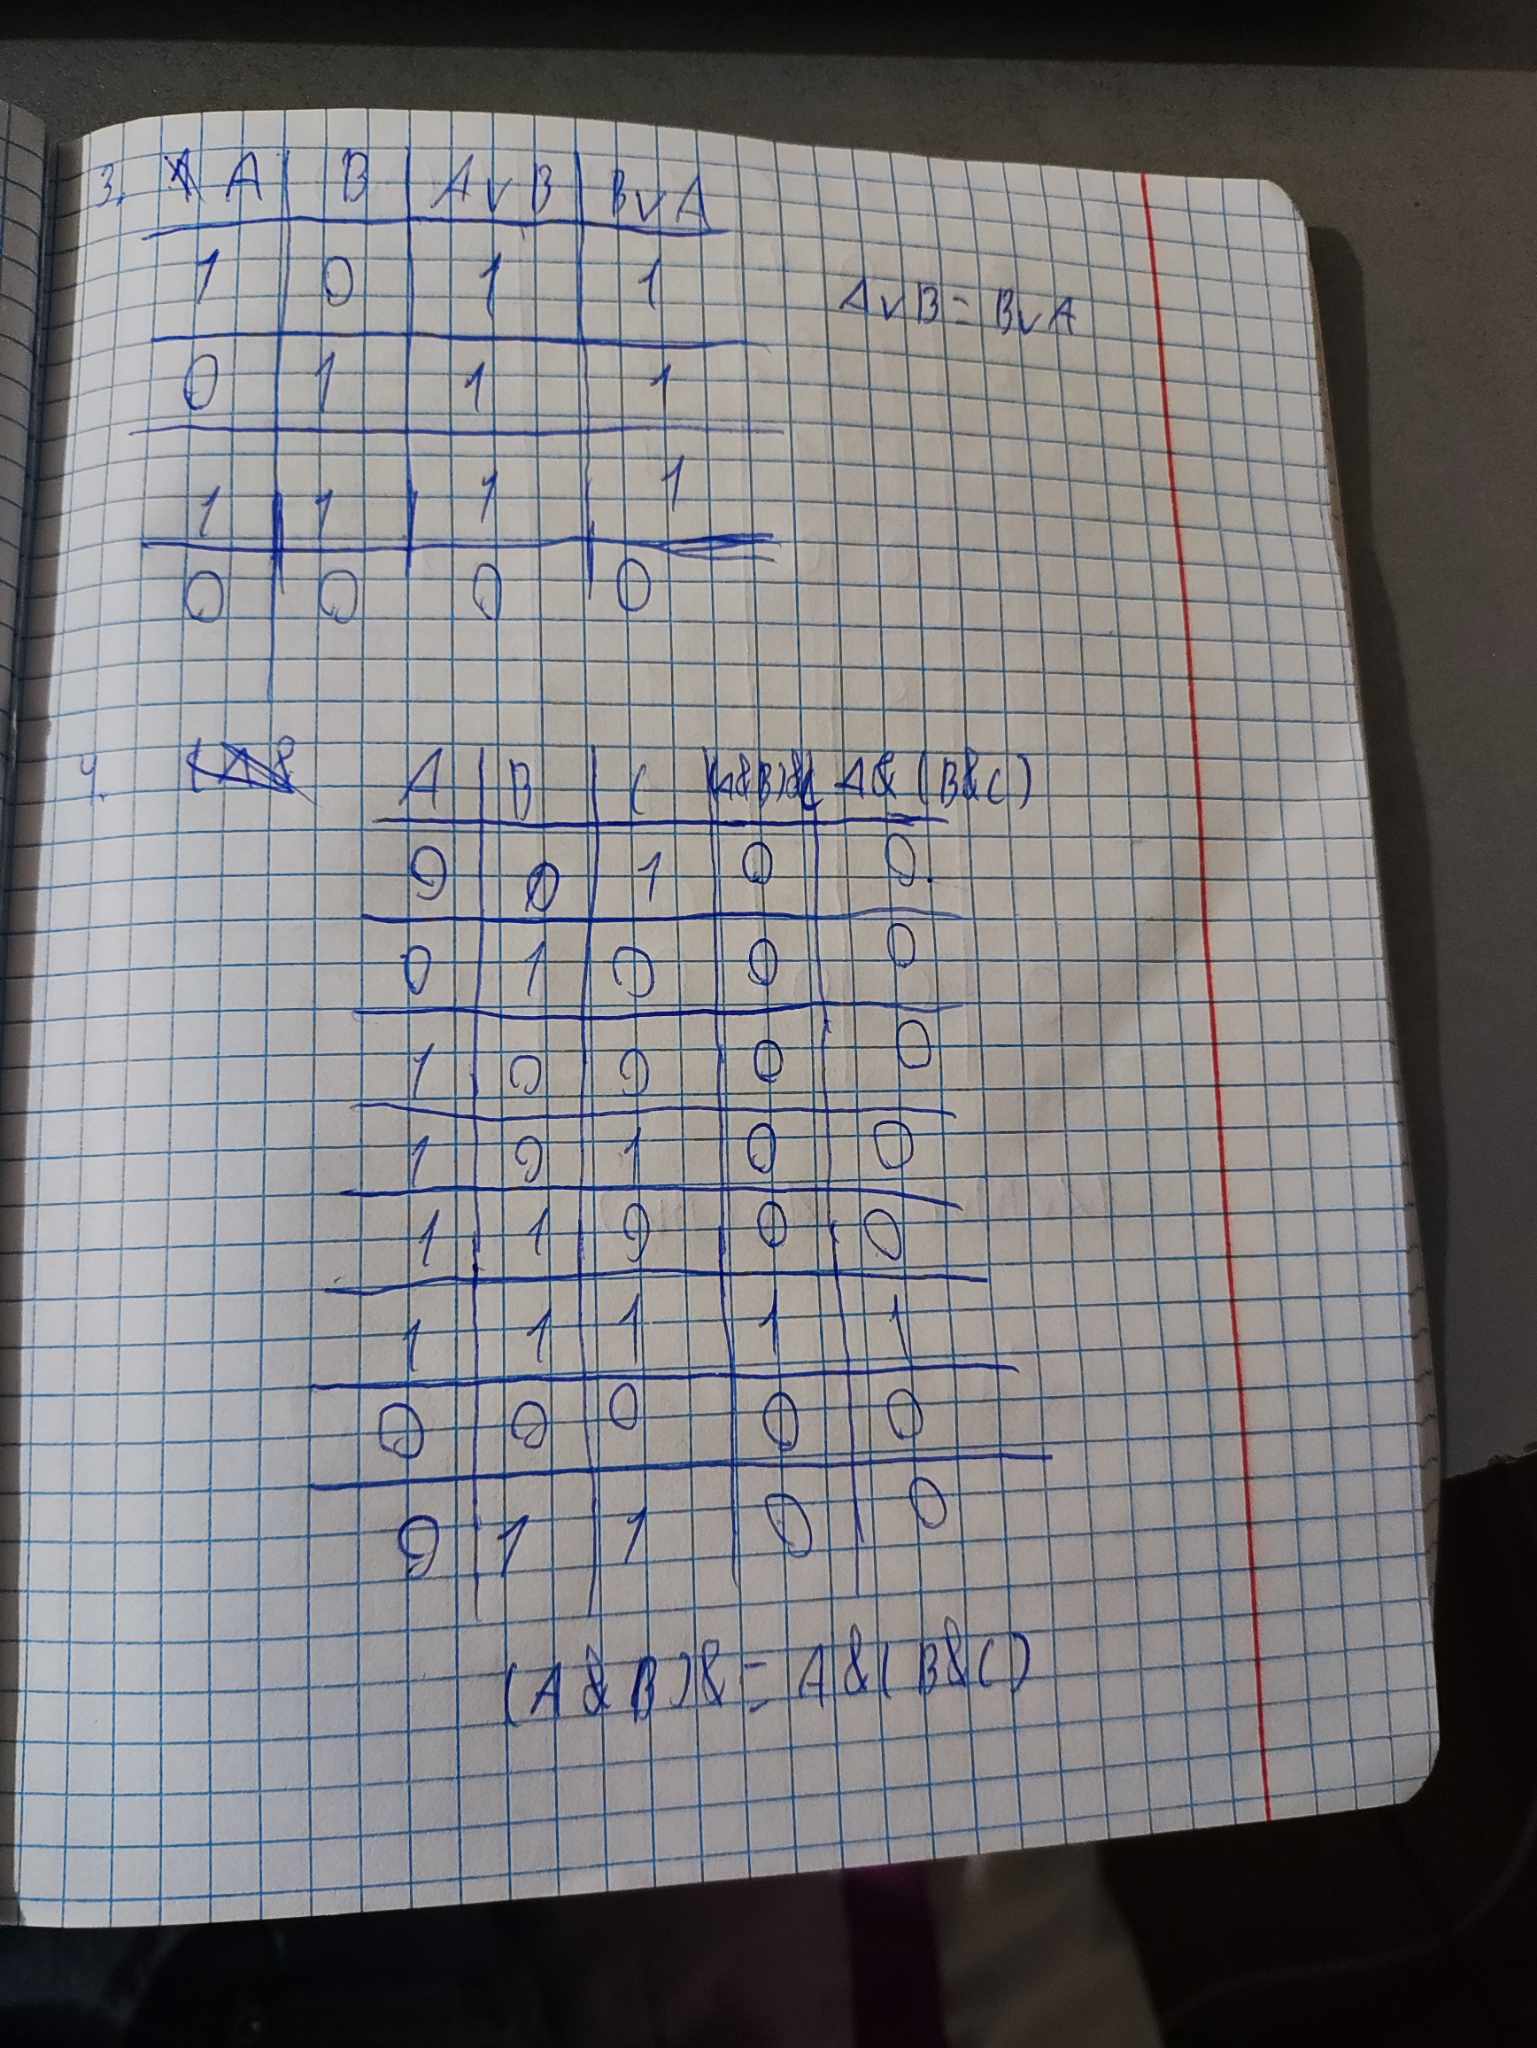 3. A B A v B B v A
1 0 1 1
A v B = B v A
0 1 1 1
1 1 1 1
0 0 0 0
4. A B C (A&B)&C A&(B&C)
0 0 1 0 0
0 1 0 0 0
1 0 0 0 0
1 0 1 0 0
1 1 0 0 0
1 1 1 1 1
0 0 0 0 0
0 1 1 0 0
(A&B)& = A&(B&C)